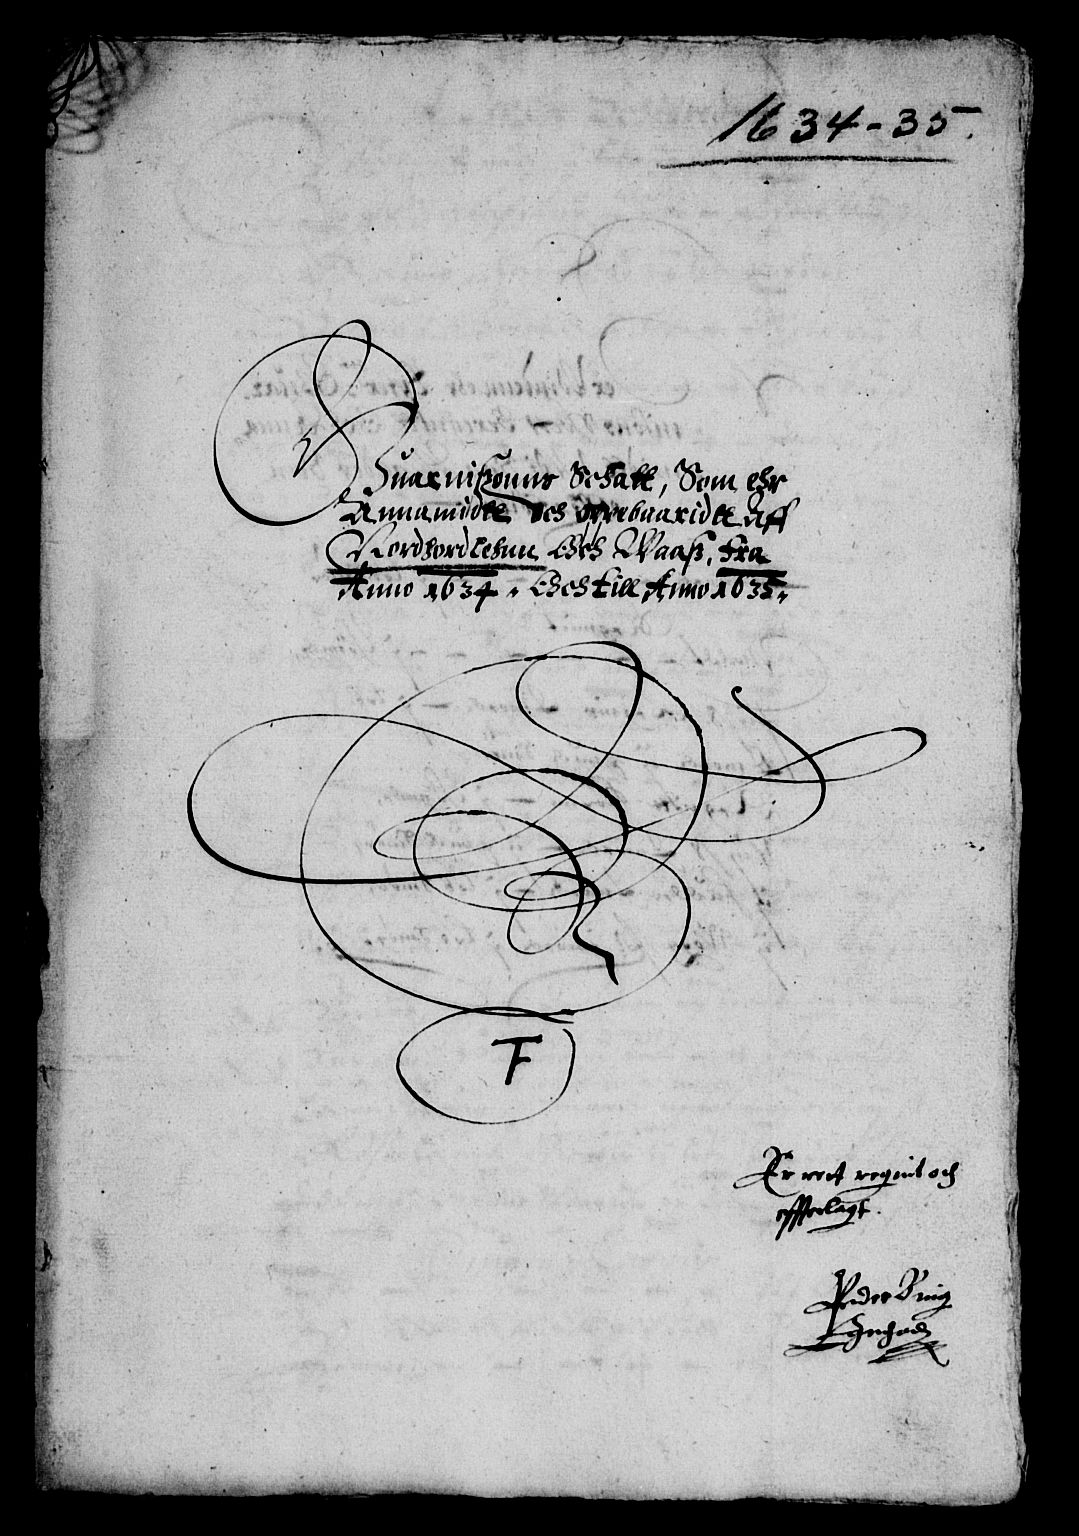 1634-35.
Guarnißouns Schatt, Som ehr
Annamidtt och oppebaaridtt Aff
Nordhordlehnn Och Waaß, fra
Anno 1634. Och till Anno 1635.
F
Er rett regnit och
efftterlagt.
Peder